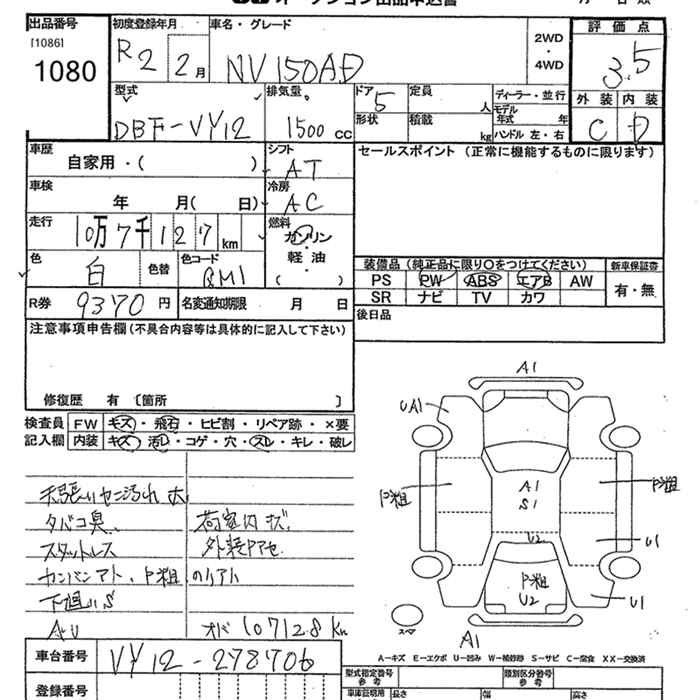 オークション出品申込書
出品番号
[1086]
1080
初度登録年月
R2 2月
車名・グレード
NV150AD
2WD
・
4WD
評価点
3.5
外装 内装
C D
型式
DBF-VY12
排気量
1500 cc
ドア
5
形状
定員
人
積載
kg
ディーラー・並行
モデル
年式 年
ハンドル 左・右
車歴
自家用・( )
シフト
AT
セールスポイント (正常に機能するものに限ります)
車検
年 月( 日)
冷房
AC
走行
10万7千127km
燃料
ガソリン
・
軽油
( )
色
白
色替
色コード
QM1
R券 9370円
名変通知期限 月 日
装備品 (純正品に限り○をつけてください)
PS PW ABS エアB AW
SR ナビ TV カワ
新車保証書
有・無
後日品
注意事項申告欄 (不具合内容等は具体的に記入して下さい)
修復歴 有 〔箇所 〕
検査員
記入欄
FW キズ・飛石・ヒビ割・リペア跡・×要
内装 キズ・汚レ・コゲ・穴・スレ・キレ・破レ
タバコ臭、 荷室内キズ
スタッドレス
カンバンアト、P粗
下廻りS
AU
オド107128km
A1
UA1
P粗
A1
S1
P粗
U2
U1
P粗
U2
U1
スペア
A1
A-キズ E-エクボ U-凹み W-補修跡 S-サビ C-腐食 XX-交換済
車台番号 VY12-278706
登録番号
型式指定番号
参考
類別区分番号
参考
車庫証明用
長さ
幅
高さ